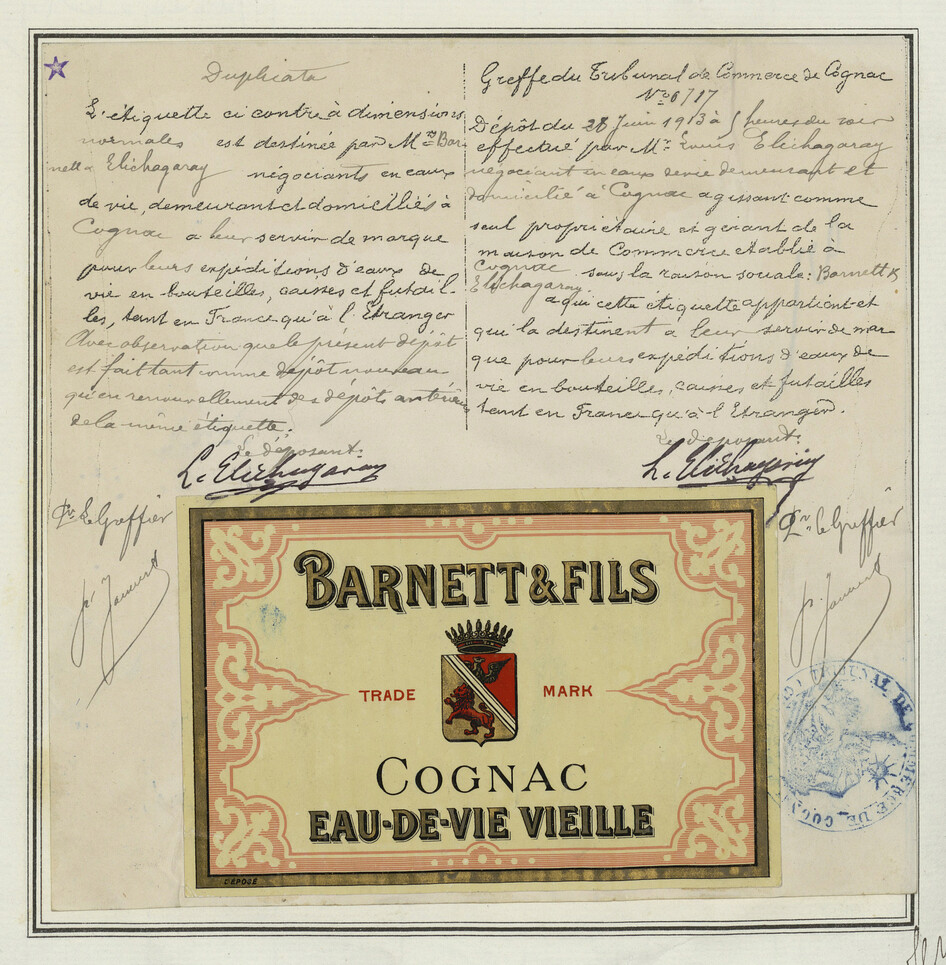 Duplicata
L'étiquette ci contre à dimensions
normales est destinée par Mrs Bar-
nett & Elichagaray négociants en eaux
de vie, demeurant et domiciliés à
Cognac a leur servir de marque
pour leurs expéditions d'eaux de
vie en bouteilles, caisses et futail-
les, tant en France qu'à l'Etranger
Avec observation que le présent dépôt
est fait tant comme dépôt nouveau
qu'en renouvellement des dépôts antérieurs
de la même étiquette.
Le déposant.
L. Elichagaray
Pr Le Greffier
Greffe du Tribunal de Commerce de Cognac
No 6717
Dépôt du 28 Juin 1913 à 5 heures du soir
effectué par Mr Louis Elichagaray
négociant en eaux de vie demeurant et
domicilié à Cognac agissant comme
seul propriétaire et gérant de la
maison de Commerce établie à
Cognac sous la raison sociale: Barnett &
Elichagaray.
a qui cette étiquette appartient et
qui la destinent a leur servir de mar
que pour leurs expéditions d'eaux de
vie en bouteilles, caisses et futailles
tant en France qu'à l'Etranger.
Le déposant.
L. Elichagaray
Pr le Greffier
BARNETT & FILS
TRADE MARK
COGNAC
EAU-DE-VIE VIEILLE
DÉPOSÉ
TRIBUNAL DE COMMERCE DE COGNAC